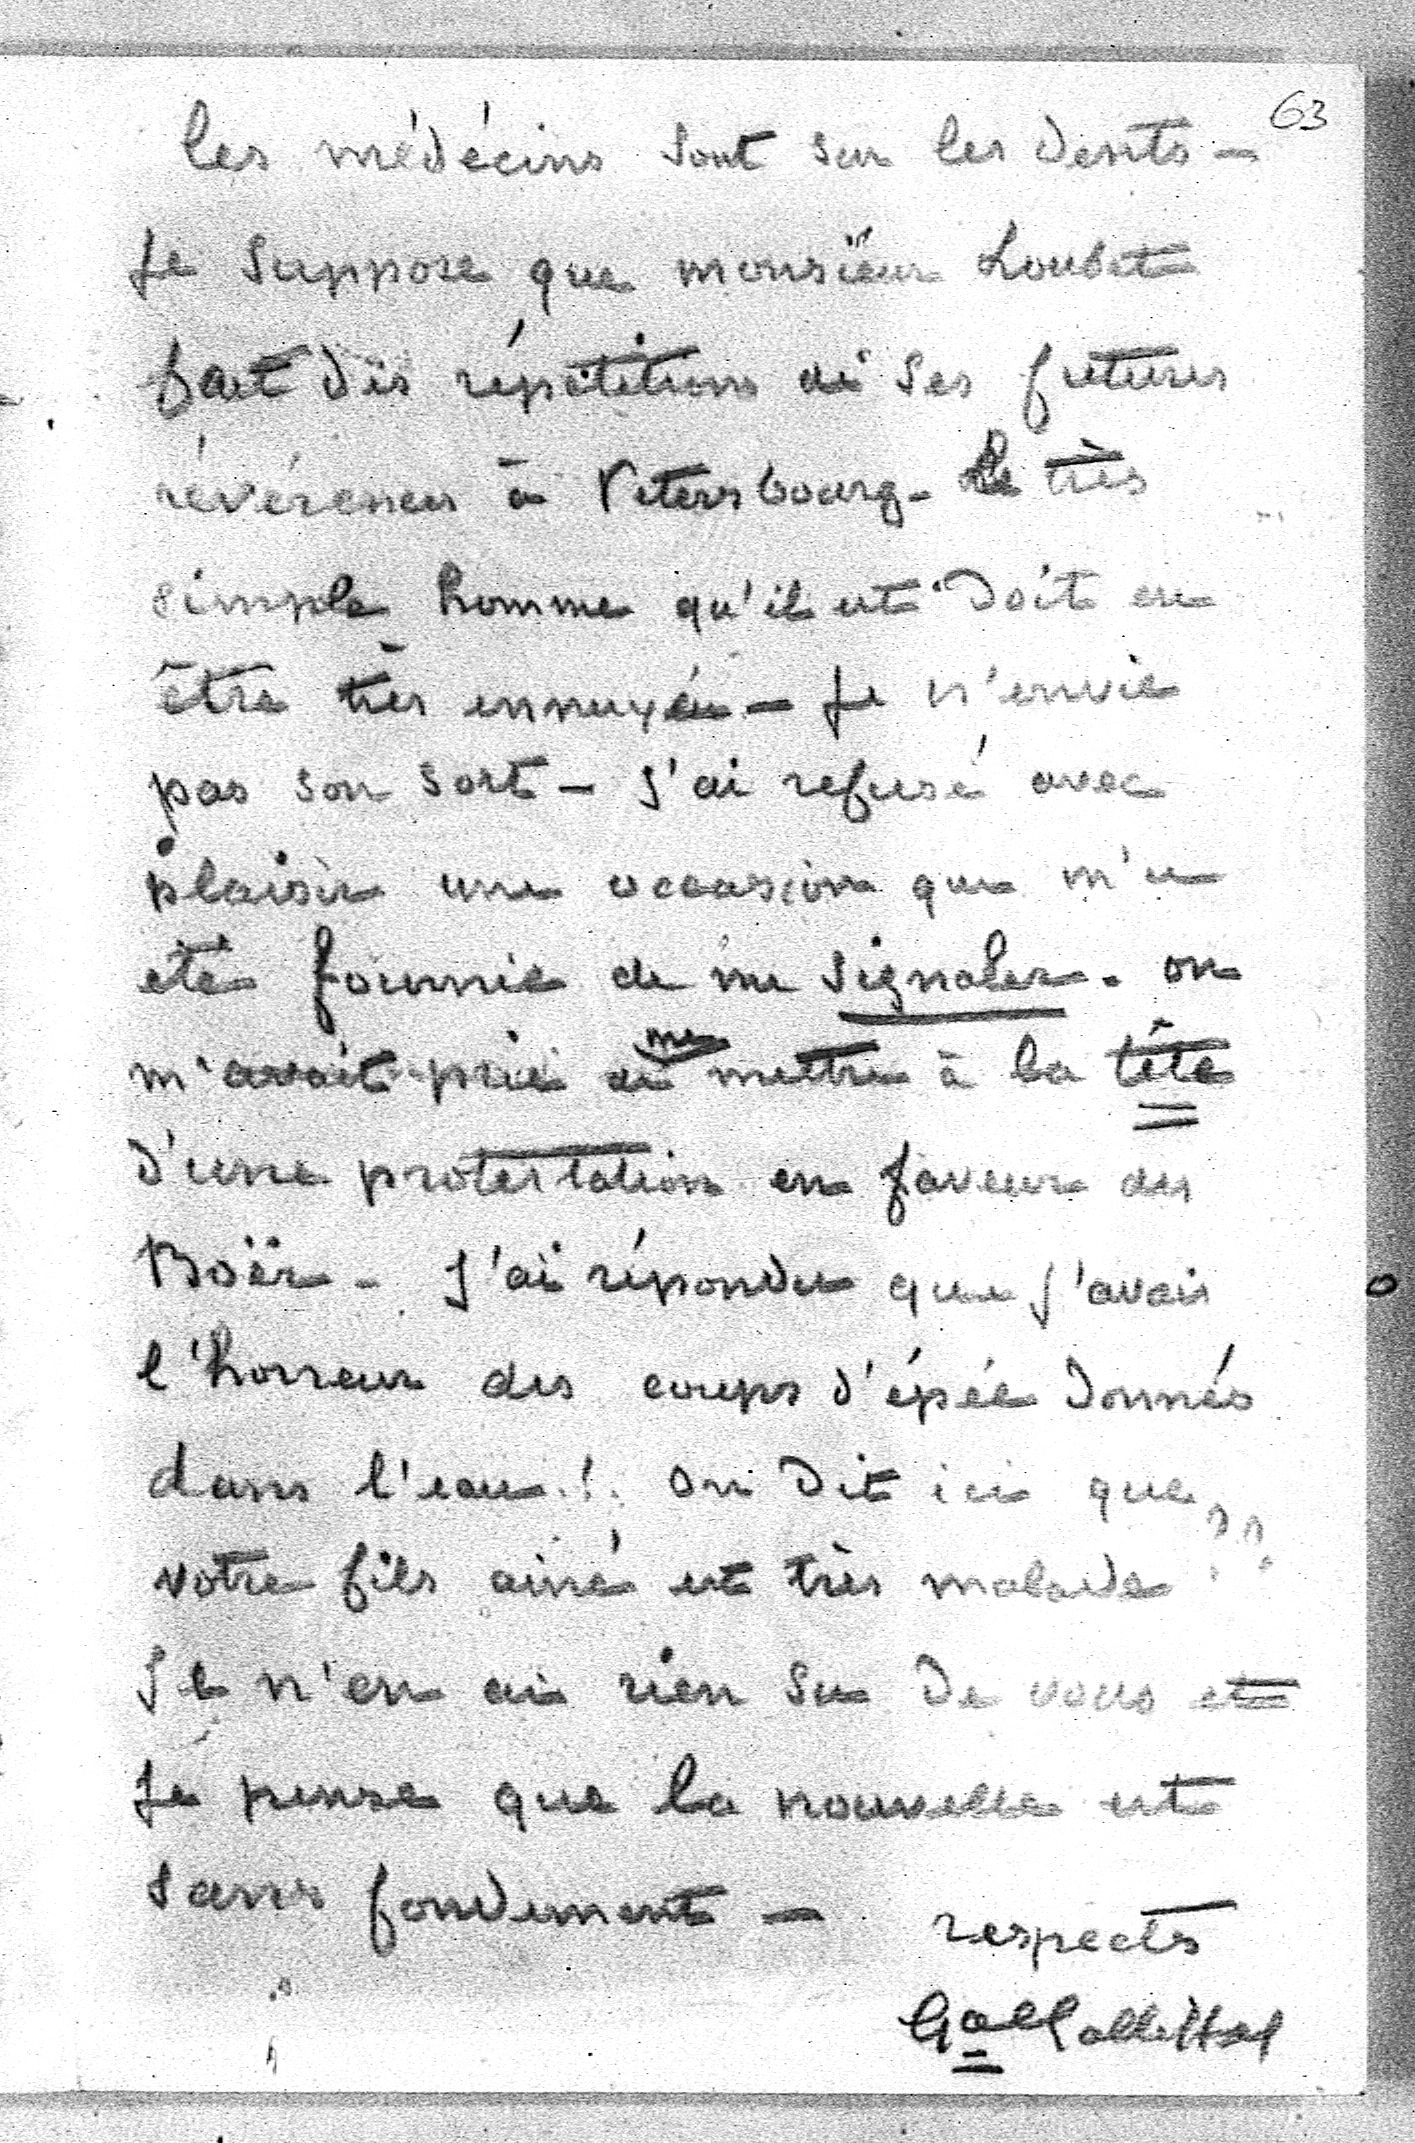 63
les médécins sont sur les dents –
Je suppose que monsieur Loubet
fait des répétitions de ses futures
révérences à Petersbourg – le très
simple homme qu'il est doit en
être très ennuyé – Je n'envie
pas son sort – J'ai refusé avec
plaisir une occasion qui m'a
été fournie de me signaler. on
m'avait prié de me mettre à la tête
d'une protestation en faveur des
Boër – J'ai répondu que j'avais
l'horreur des coups d'épée donnés
dans l'eau ! on dit ici que
votre fils ainé est très malade ??
Je n'en ai rien su de vous et
Je pense que la nouvelle est
sans fondement –
respects
Gal